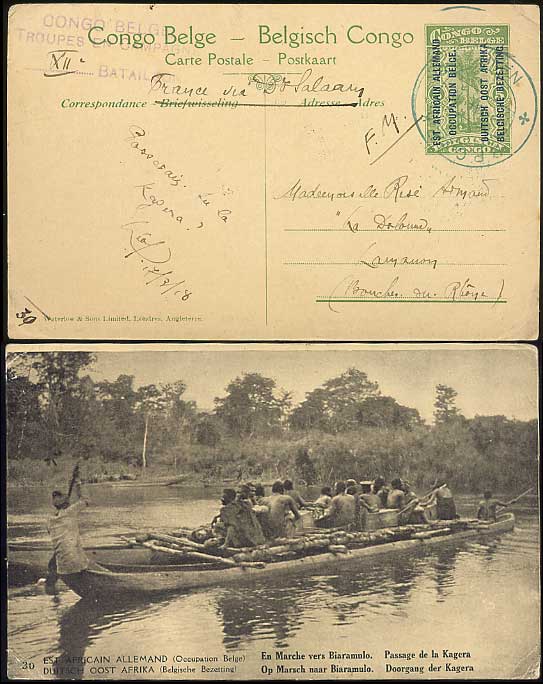 CONGO BELGE
TROUPES EN CAMPAGNE
XIIe
BATAILLON
Congo Belge – Belgisch Congo
Carte Postale – Postkaart
France via D'Salaam
Correspondance Briefwisseling
Adresse Adres
CONGO BELGE
EST AFRICAIN ALLEMAND
OCCUPATION BELGE.
DUITSCH OOST AFRIKA
BELGISCHE BEZETTING
BELGISCH CONGO
F. M.
la
Kagera
17/3/18
Mademoiselle
"La
Lamanon
(Bouches du Rhône)
30
Waterlow & Sons Limited, Londres, Angleterre.
30 EST AFRICAIN ALLEMAND (Occupation Belge)
DUITSCH OOST AFRIKA (Belgische Bezetting)
En Marche vers Biaramulo. Passage de la Kagera
Op Marsch naar Biaramulo. Doorgang der Kagera